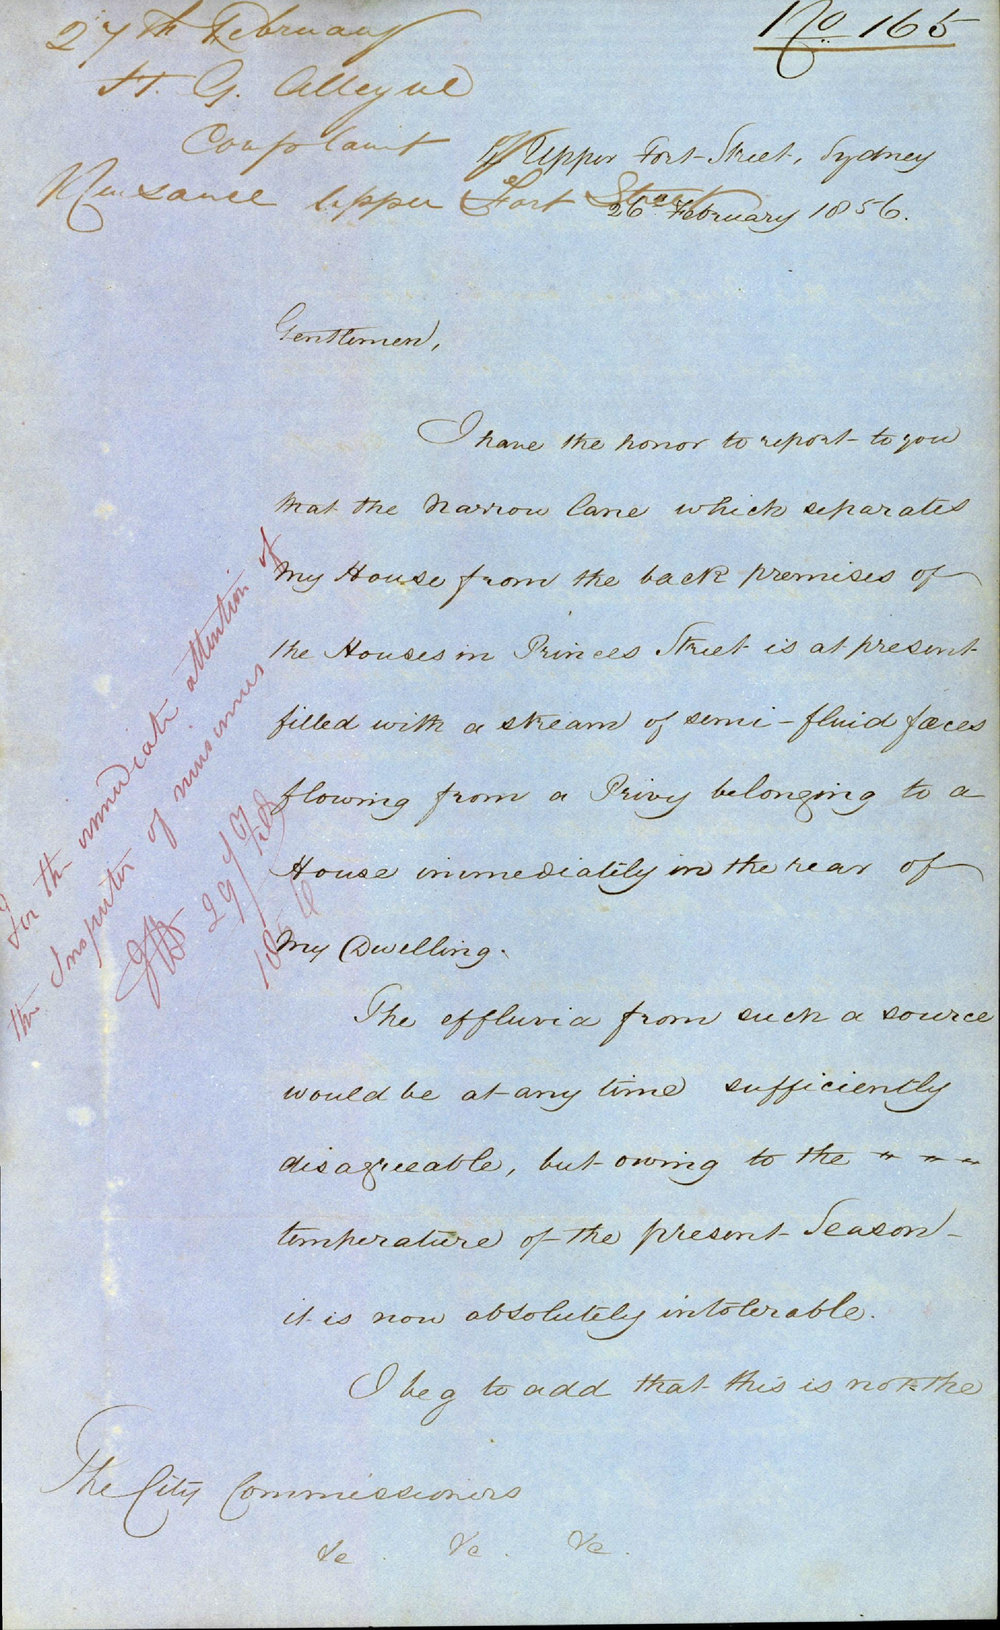 27th February
No 165
H. G. Alleyne
Complaint of
Nuisance Upper Fort Street
Upper Fort Street, Sydney
26th February 1856.
Gentlemen,
I have the honor to report to you
that the narrow lane which separates
My House from the back premises of
the Houses in Princes Street is at present
filled with a stream of semi-fluid fæces
flowing from a Privy belonging to a
House immediately in the rear of
My Dwelling.
The effluvia from such a source
would be at any time sufficiently
disagreeable, but owing to the
temperature of the present Season
it is now absolutely intolerable.
I beg to add that this is not the
The City Commissioners
&c &c. &c.
For the immediate attention of
the Inspector of nuisances
29/Feb